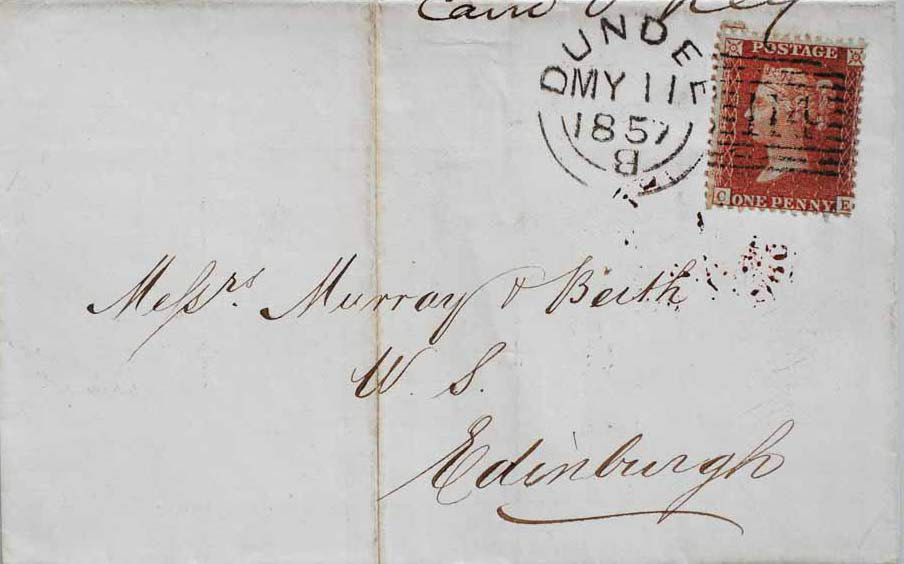 DUNDEE
MY 11
1857
B
POSTAGE
114
C ONE PENNY E
Messrs Murray & Beith
W. S.
Edinburgh